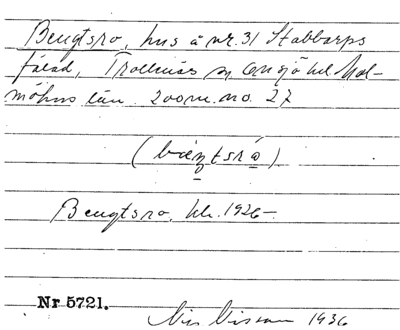 Bengtsro, hus å nr. 31 Stabbarps
fälad, Trollenäs sn Onsjö hd. Mal-
möhus län. 200 m. no. 27
(bæŋtsró)
Bengtsro, kk. 1926-
Nr 5721.
Nils Nilsson 1936